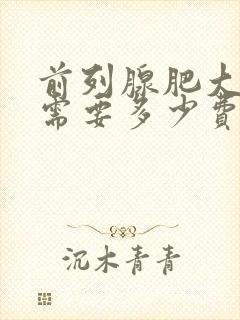 前列腺肥大
需要多少費
沉木青青